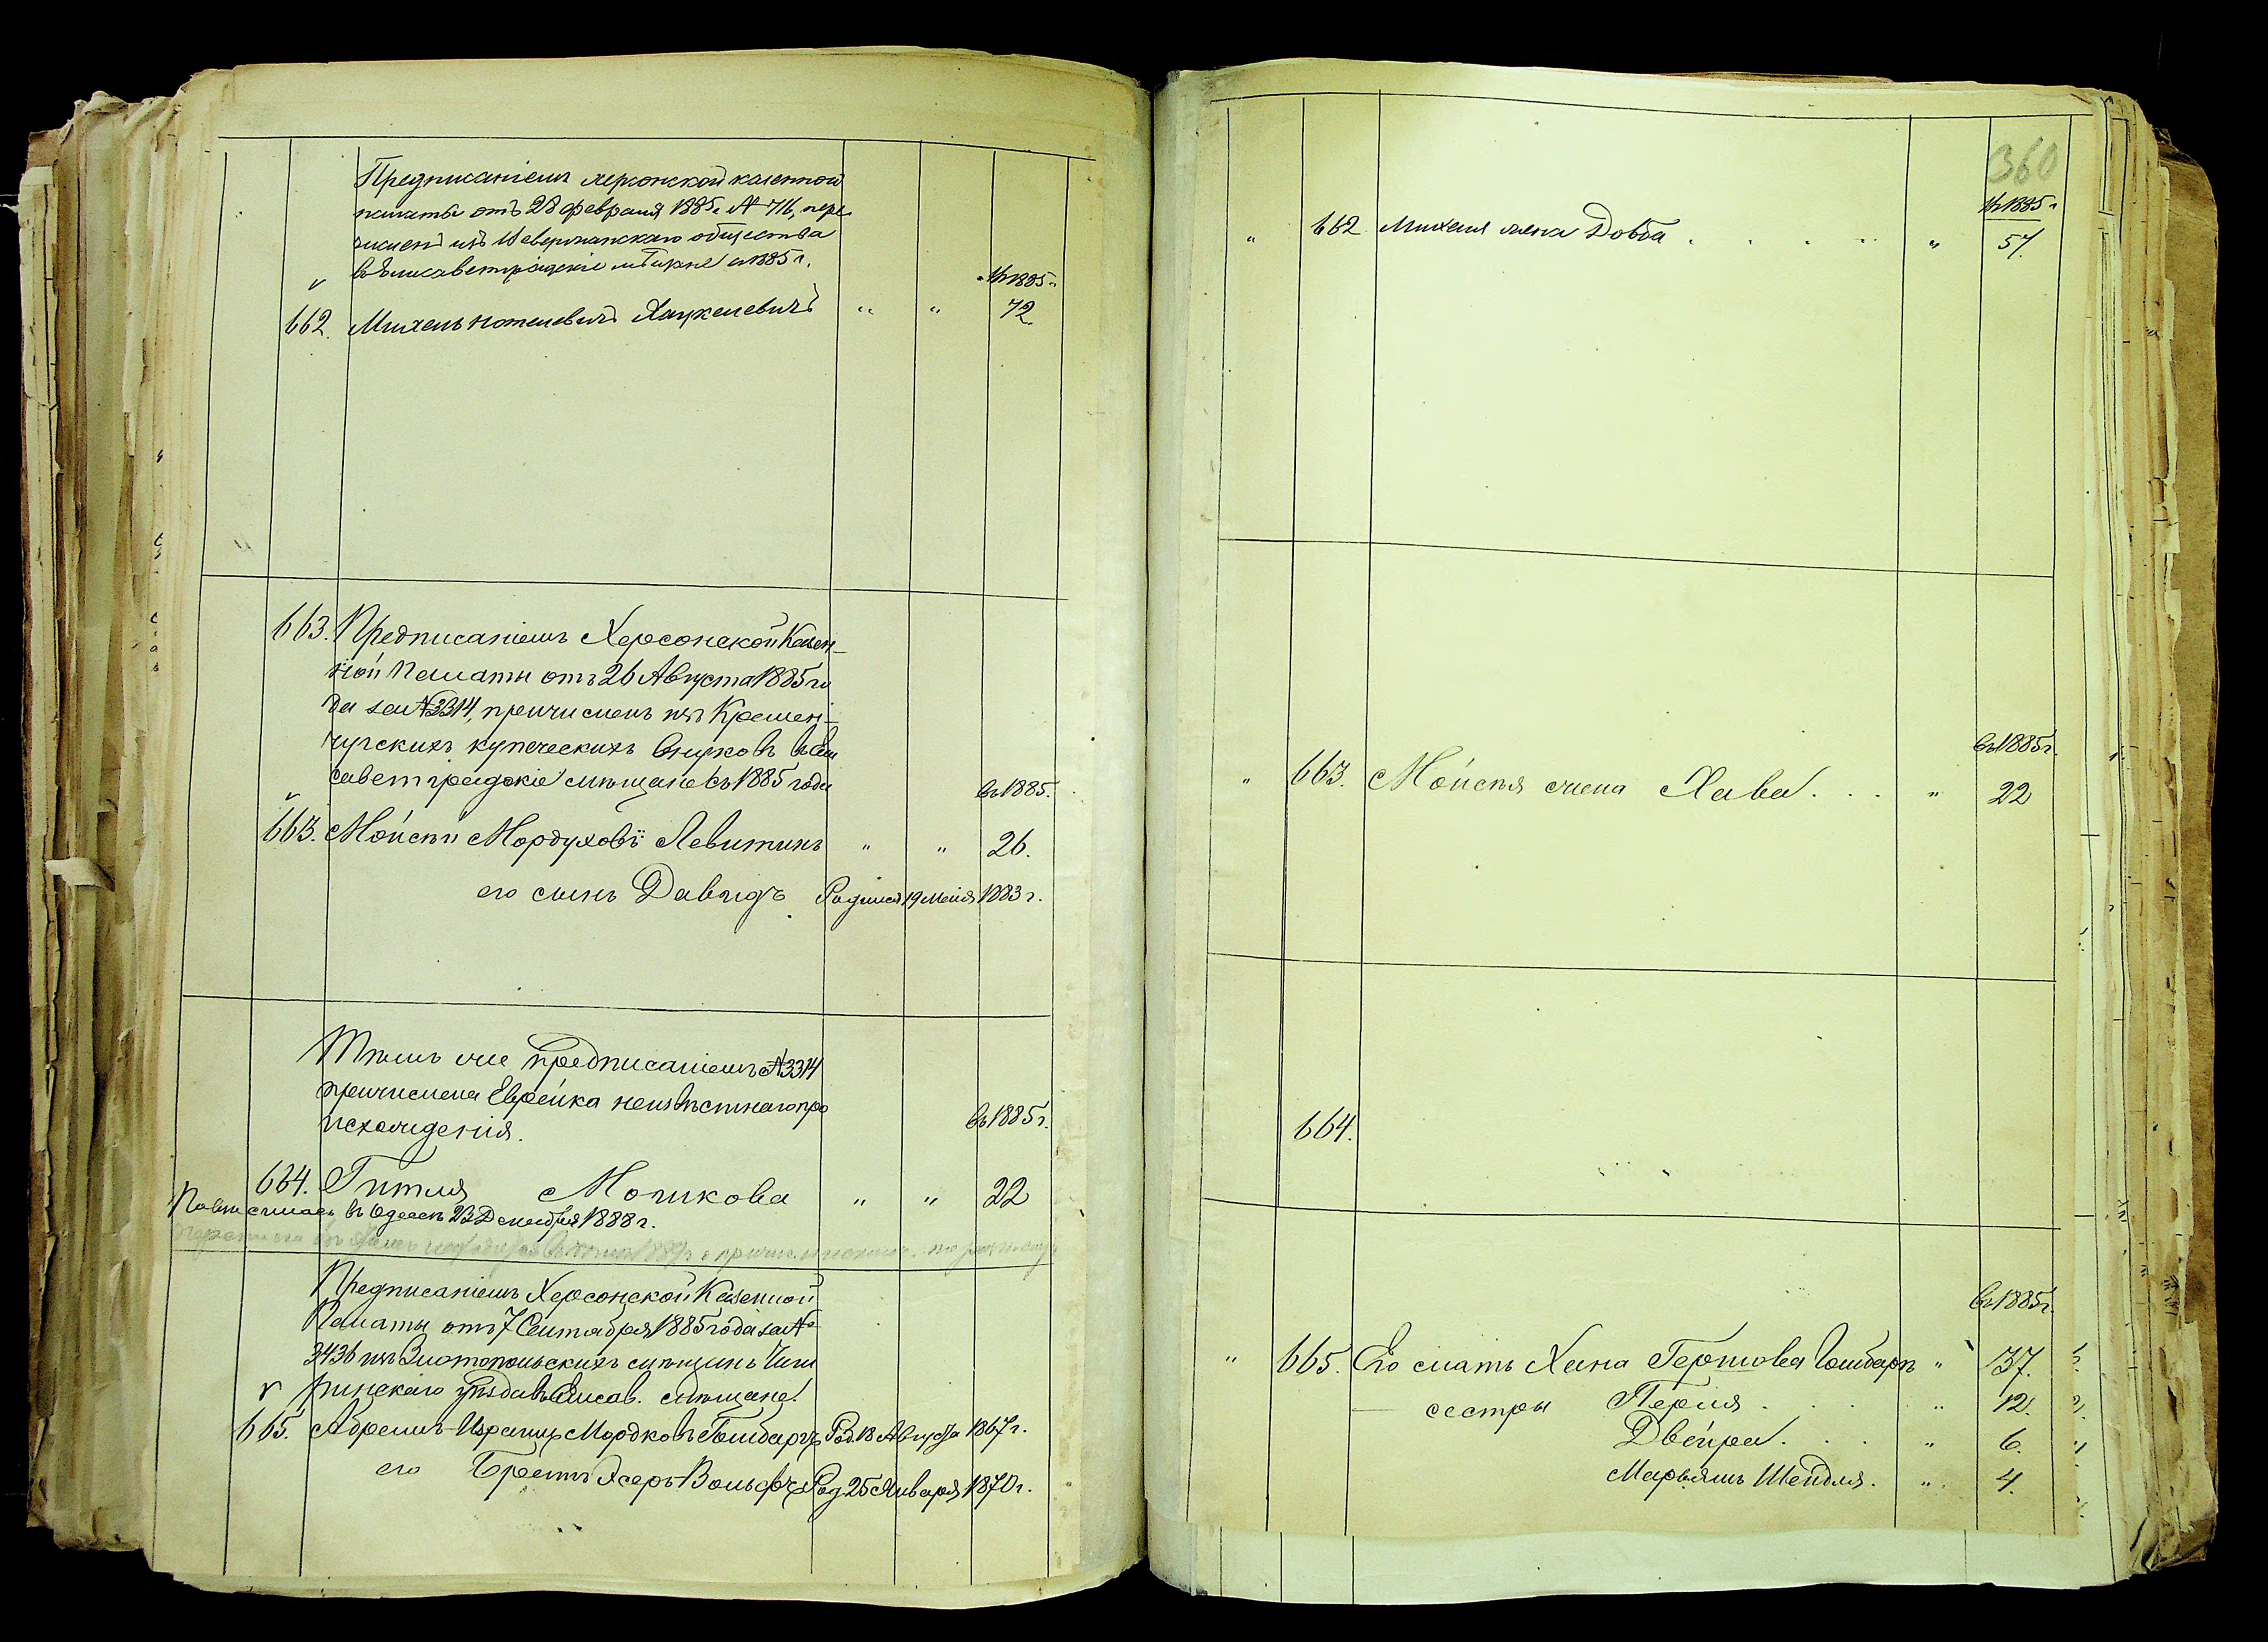 Предписаніемъ херсонской казенной
палаты отъ 28 февраля 1885 г. № 716, пере
численъ изъ общества
въ Елисаветградскіе мѣщане съ 1885 г.
въ 1885 г.
662. Михель Нотелевичъ Хацкелевичъ " " 72.
663. Предписаніемъ Херсонской Казен-
ной Палаты отъ 26 Августа 1885 го
да за № 3314, причисленъ изъ Кремен-
чугскихъ купеческихъ внуковъ въ Ели
саветградскіе мѣщане съ 1885 года
въ 1885.
663. Мойсѣй Мордуховъ Левитинъ " " 26.
его сынъ Давидъ Родился 19 Мая 1883 г.
Тѣмъ же предписаніемъ № 3314
причислена Еврейка неизвѣстнаго про
исхожденія.
въ 1885 г.
664. Гитля Мошкова " " 22
въ Одессѣ 23 Декабря 1888 г.
Предписаніемъ Херсонской Казенной
Палаты отъ 7 Сентября 1885 года за №
3436 изъ Златопольскихъ мѣщанъ Чиги
ринскаго уѣзда въ Елисав. мѣщане
665. Абрамъ-Израиль Мордковъ Гольдбархъ Род. 18 Августа 1867 г.
его Братъ Хаеръ Вольфъ Род 25 Января 1870 г.
360
въ 1885 г.
" 662 Михеля жена Довба . . . . " 57.
въ 1885 г.
" 663. Мойсѣя жена Хава . . . " 22
664.
въ 1885 г.
" 665. Его мать Хана Гершова " 37.
сестры Перля . . . " 12.
Двейра . . . " 6.
Марьямъ Шейдля. " 4.